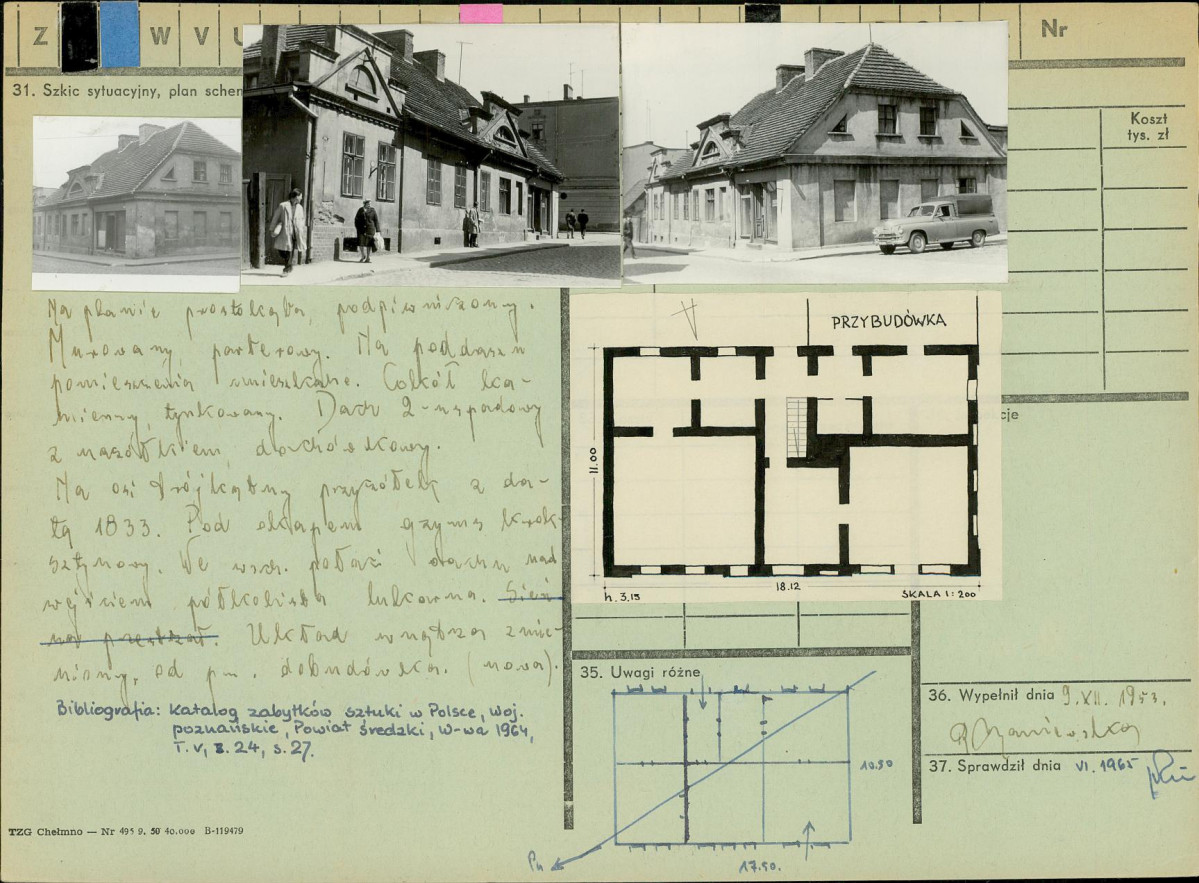 Z W V U Nr
31. Szkic sytuacyjny, plan schem
Koszt
tys. zł
Na planie prostokąta, podpiwniczony.
Murowany, parterowy. Na poddaszu
pomieszczenia mieszkalne. Cokół ka-
mienny, tynkowany. Dach 2-uspadowy
z naszółkiem, dachówkowy.
Na osi trójkątny przyczółek z da-
tą 1833. Pod okapem gzyms krok-
sztynowy. We wsch. połaci dachu nad
wejściem półkolista lukarna. Sień
na przestrzał. Układ wnętrza zmie-
niony, od pn. dobudówka. (nowa).
Bibliografia: Katalog zabytków sztuki w Polsce, woj.
poznańskie, Powiat średzki, W-wa 1964,
T. V, z. 24, s. 27.
PRZYBUDÓWKA
11.00
18.12
h. 3.15
SKALA 1:200
cje
35. Uwagi różne
10.50
17.50.
Pn
36. Wypełnił dnia 9.XII. 1953.
37. Sprawdził dnia VI. 1965
TZG Chełmno — Nr 495 9. 50 40.000 B-119479